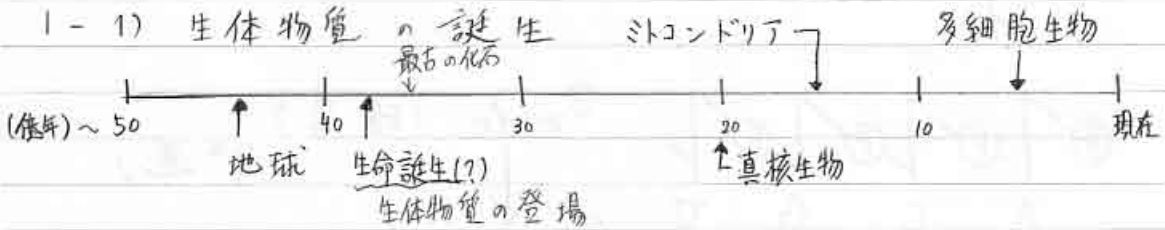 1-1) 生体物質の誕生
ミトコンドリア
多細胞生物
最古の化石
(億年)~ 50 40 30 20 10 現在
地球
生命誕生(?)
真核生物
生体物質の登場